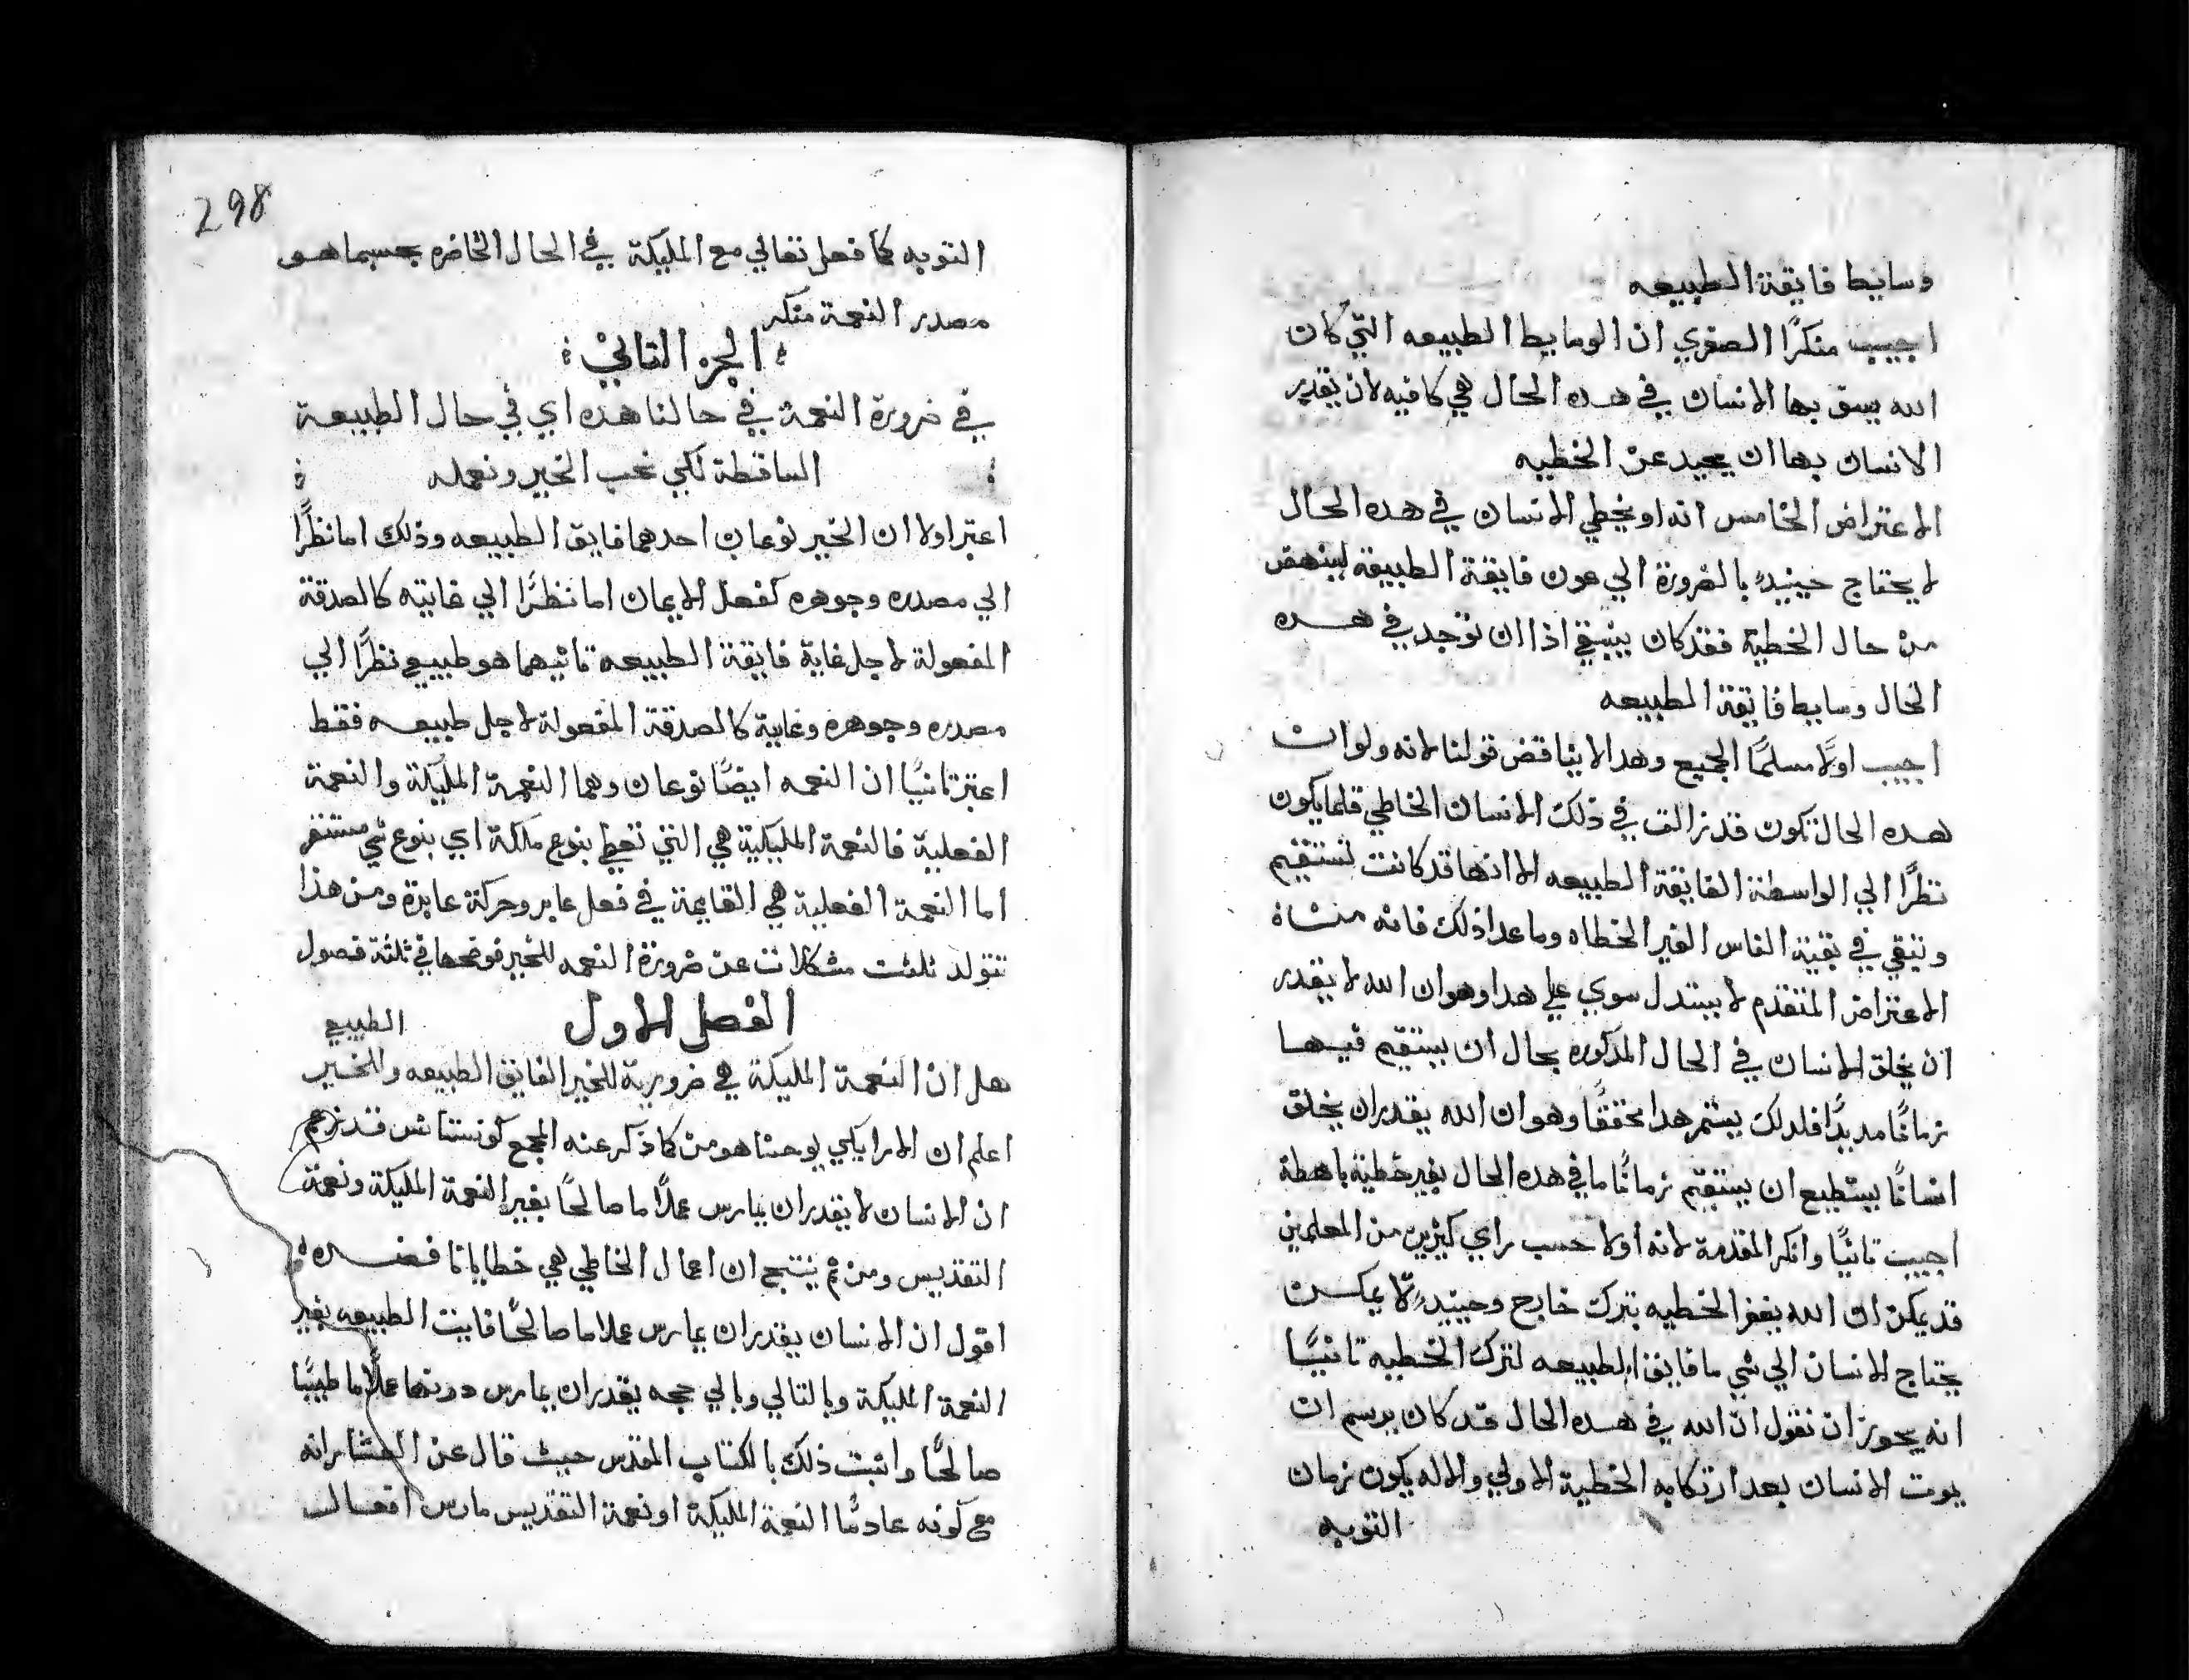 وسايط فايقة الطبيعه
اجيب منكرًا الصغري ان الوسايط الطبيعه التي كان
الله يسق بها الانسان في هده الحال هي كافيه لان يقدر
الانسان بها ان يحيد عن الخطيه
الاعتراض الخامس انه او يخطي الانسان في هده الحال
لا يحتاج حينيدٍ بالضرورة الي عون فايقة الطبيعة لينهض
من حال الخطية فقد كان ينبغي اذا ان توجد في هده
الحال وسايط فايقة الطبيعه
اجيب اولًا مسلمًا الجميع وهدا لا يناقض قولنا لانه ولو ان
هده الحال تكون قد زالت في ذلك الانسان الخاطي قلما يكون
نظرًا الي الواسطة الفايقة الطبيعه الا انها قد كانت تستقيم
وتبقي في بقية الناس الغير الخطاه وما عدا ذلك فانه منشاة
الاعتراض المتقدم لا يستدل سوي علي هدا وهو ان الله لا يقدر
ان يخلق الانسان في الحال المدكوره بحال ان يستقيم فيها
زمانًا مديدًا فلدلك يستمر هدا محققًا وهو ان الله يقدر ان يخلق
انسانًا يستطيع ان يستقيم زمانًا ما في هده الحال بغير خطية باهظة
اجيب تانيًا وانكر المقدمة لانه اولا حسب راي كثيرين من المعلمين
قد يمكن ان الله يغفر الخطيه بترك خارج وحينيدٍ لا يمكن
يحتاج الانسان الي شي ما فايق الطبيعه لترك الخطيه تانيًا
انه يجوز ان نقول ان الله في هده الحال قد كان يرسم ان
يموت الانسان بعد ارتكابه الخطية الاولي والا له يكون زمان
التوبه
298
التوبه كما فعل تعالي مع المليكة في الحال الحاضره بحسبما هو
مصدر النعمة منكر
الجز التاني
في ضرورة النعمة في حالنا هده اي في حال الطبيعة
الساقطة لكي نحب الخير ونعمله
اعتبر اولا ان الخير نوعان احدهما فايق الطبيعه وذلك اما نظرًا
الي مصدره وجوهره كفعل الايمان اما نظرًا الي غايته كالصدقة
المفعولة لاجل غاية فايقة الطبيعه تانيهما هو طبيعي نظرًا الي
مصدره وجوهره وغاية كالصدقة المفعولة لاجل طبيعه فقط
اعتبر تانيًا ان النعمه ايضًا نوعان وهما النعمة المليكة والنعمة
الفعلية فالنعمة المليكية هي التي تعطي بنوع ملكة اي بنوع شي مستقر
اما النعمة الفعلية هي القايمة في فعل عابر وحركة عابرة ومن هذا
تتولد ثلثت مشكلات عن ضرورة النعمه للخير فوضحها في ثلثة فصول
الفصل الاول
الطبيعي
هل ان النعمة المليكة هي ضرورية للخير الفايق الطبيعه وللخير
اعلم ان الاراتيكي يوحنا هوس كما ذكر عنه المجمع كونستانس قد زعم
ان الانسان لا يقدر ان يمارس عملًا ما صالحًا بغير النعمة المليكة ونعمة
التقديس ومن ثم ينتج ان اعمال الخاطي هي خطايا
اقول ان الانسان يقدر ان يمارس عملا ما صالحًا فايت الطبيعه بغير
النعمة المليكة وبالتالي وبالي حجه يقدر ان يمارس دونها عملًا ما طبيبًا
صالحًا واثبت ذلك بالكتاب المقدس حيث قال عن العشار انه
مع كونه عادمًا النعمة المليكة او نعمة التقديس مارس افعال